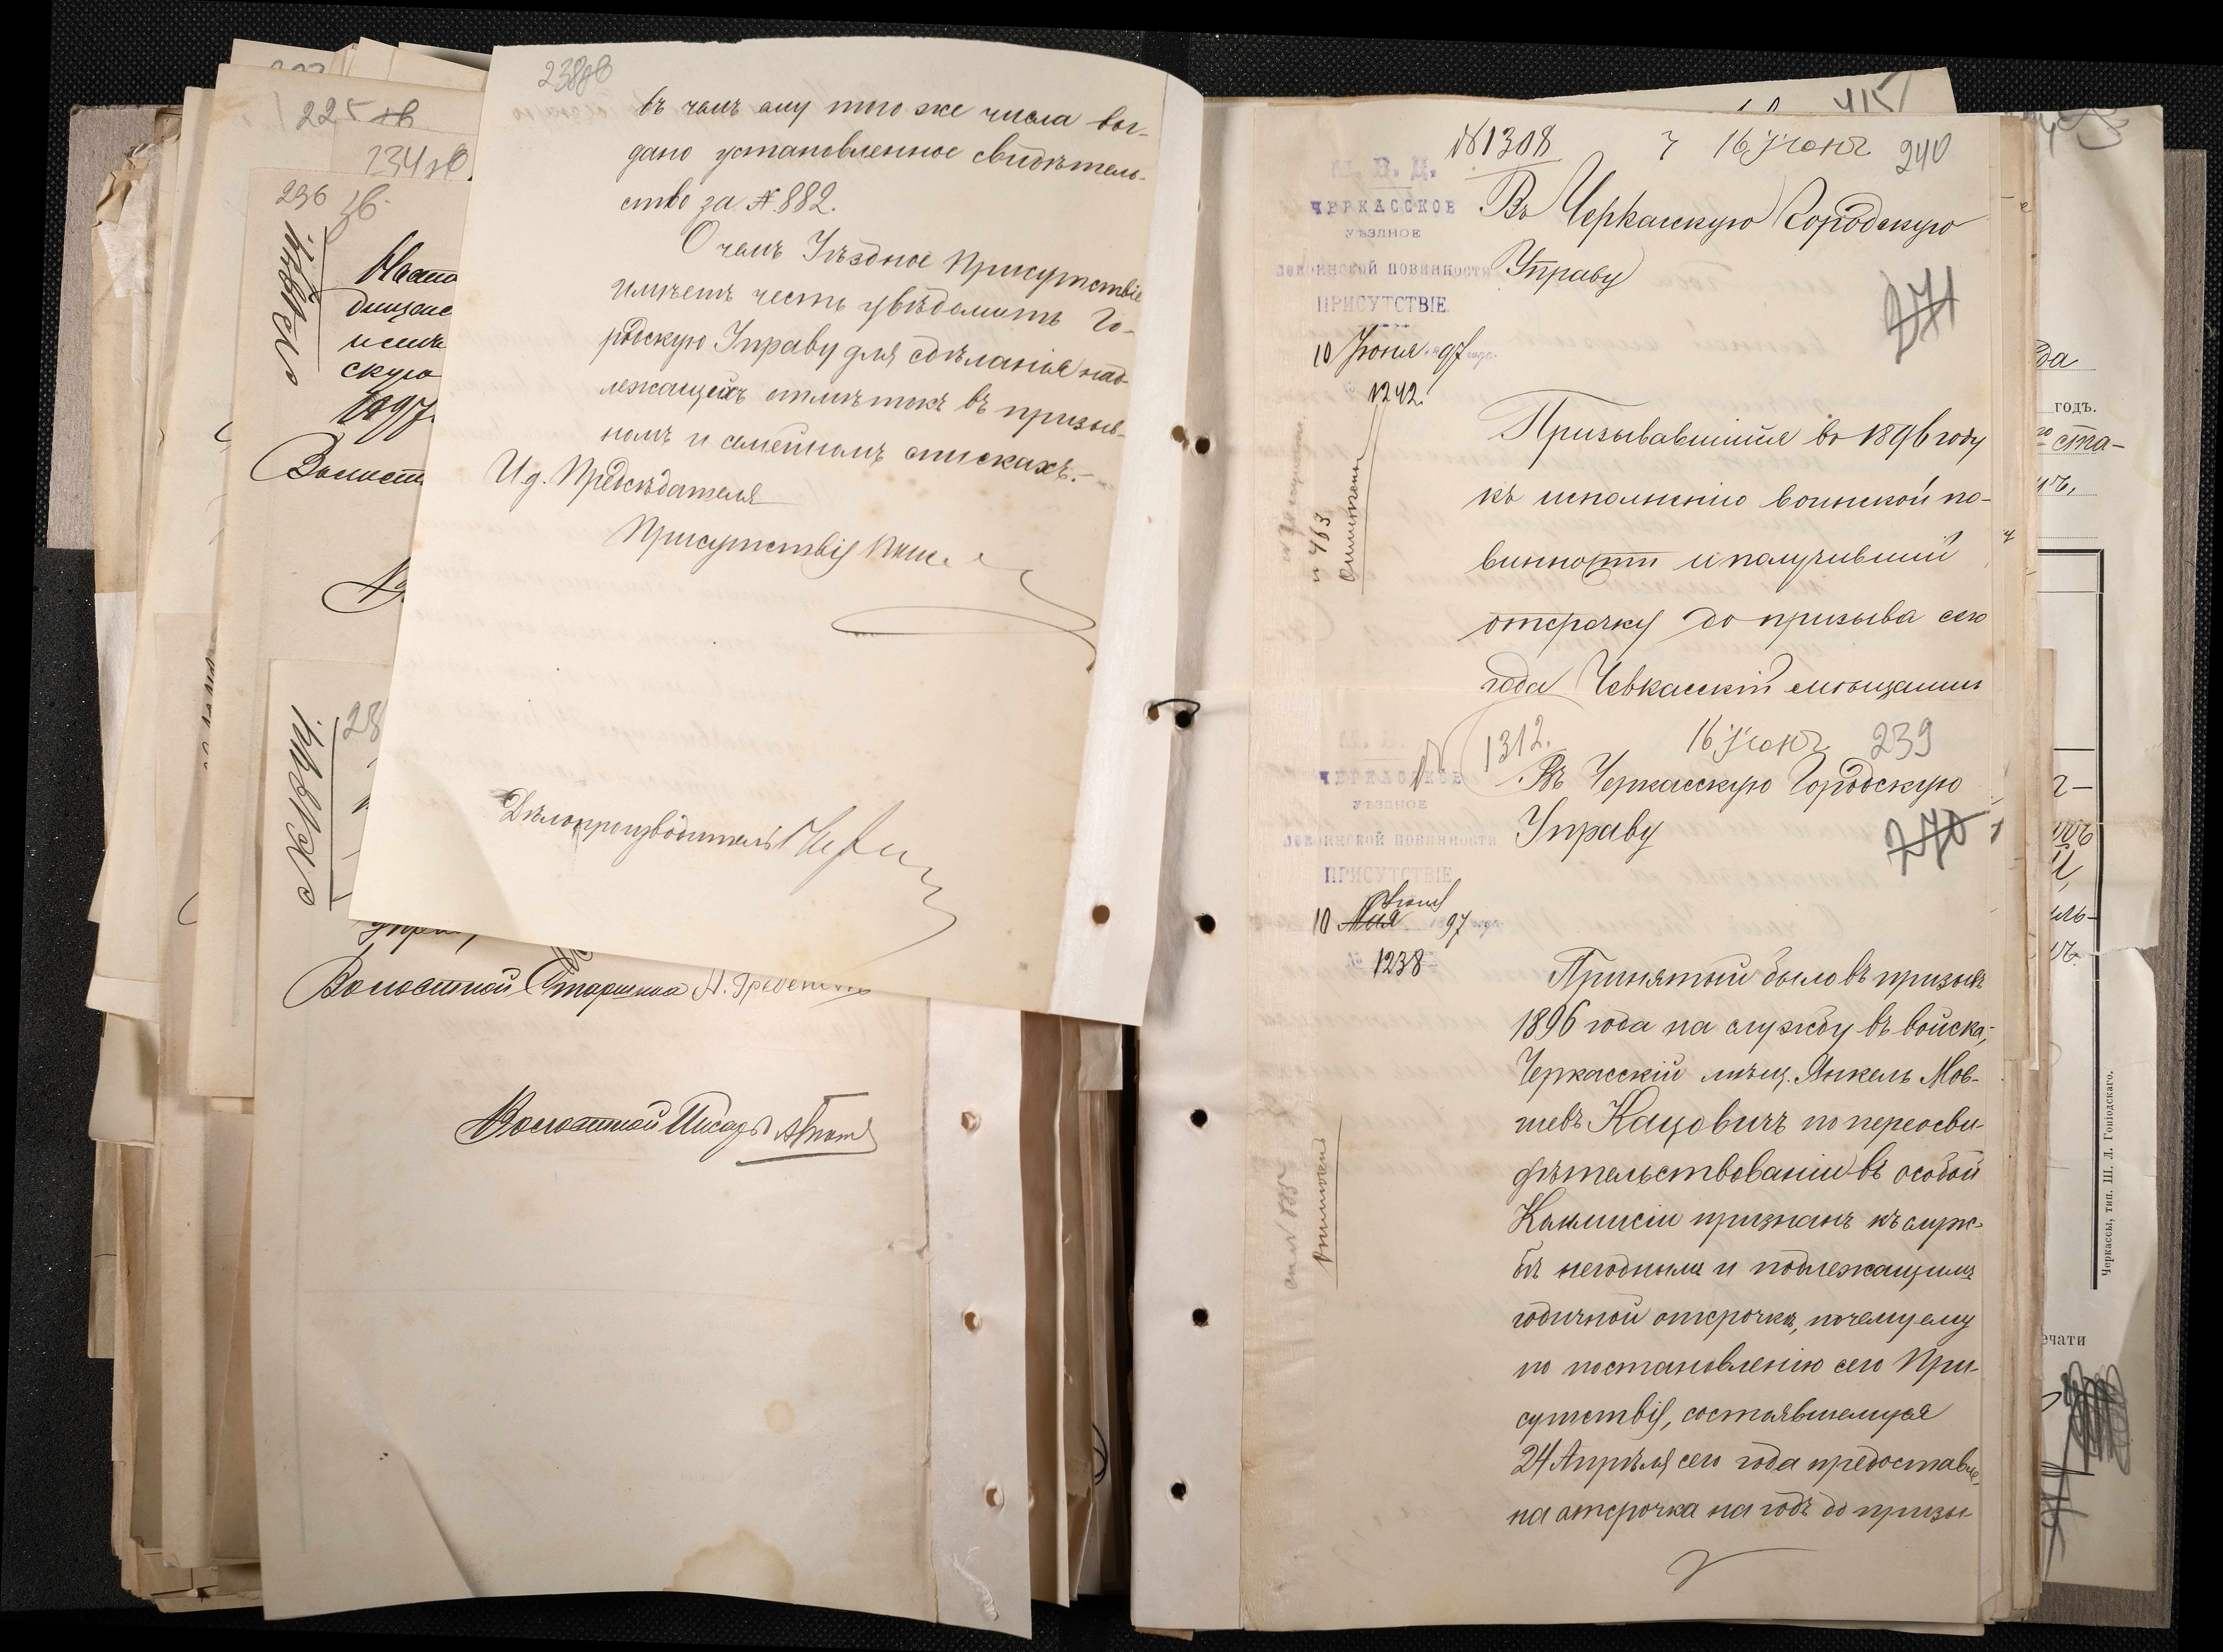 238об
въ чемъ ему того же числа вы-
дано установленное свидѣтель-
ство за №882.
О чемъ Уѣздное Присутствіе
имѣетъ честь увѣдомить Го-
родскую Управу для сдѣланія над-
лежащихъ отмѣтокъ въ призыв-
номъ и семейномъ спискахъ.-
И.д. Предсѣдателя
Присутствія
Дѣлопроизводитель
225 об
234 об
236
скую
1897
№ 1844.
Волостной Старшина
Волостной Писарь
№1308 16 Іюня 240
М. В. Д.
ЧЕРКАССКОЕ
УѢЗДНОЕ
ПО ВОИНСКОЙ ПОВИННОСТИ
ПРИСУТСТВІЕ.
10 Іюня 97 года
№ 1242.
Въ Черкасскую Городскую
Управу
271
и 463
Отмѣтены
Призывавшійся въ 1896 году
къ исполненію воинской по-
винности и получившій
отсрочку до призыва сего
года Чевкасскій мѣщанинъ
№ 1312. 16 Іюня 239
ЧЕРКАССКОЕ
УѢЗДНОЕ
ПО ВОИНСКОЙ ПОВИННОСТИ
ПРИСУТСТВІЕ
Іюня
10 Мая 1897 года
№ 1238
Въ Черкасскую Городскую
Управу
270
Принятый было въ призывъ
1896 года на службу въ войска,
Черкасскій мѣщ. Янкель Мов-
шевъ Кацовичъ по переосви-
дѣтельствованіи въ особой
Коммисіи признанъ къ служ-
бѣ негоднымъ и подлежащимъ
годичной отсрочкѣ, почему ему
по постановленію сего При-
сутствія, состоявшемуся
24 Апрѣля сего года предоставле-
на отсрочка на годъ до призы-
да
годъ.
ста-
Черкассы, тип. Ш. Л. Гоніодскаго.
ечати